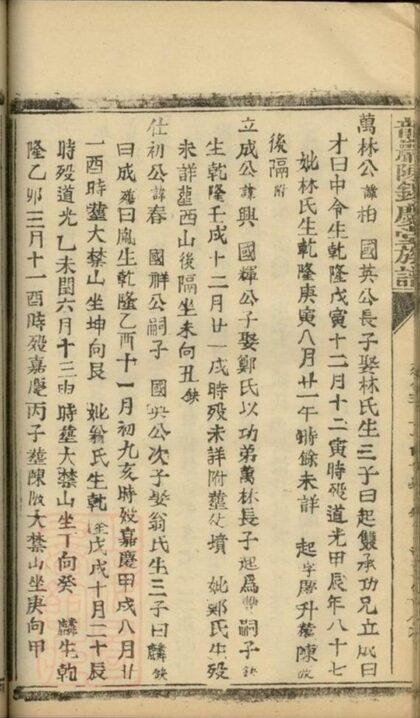 萬林公諱柏 國英公長子娶林氏生三子曰起雙承功兄立成曰
才曰中令生乾隆戊寅十二月十二寅時歿道光甲辰年八十七
妣林氏生乾隆庚寅八月廿一年時餘未詳 起字 升葬陳
後隔附
立成公諱興 國輝公子娶鄭氏以功弟萬林長子起為嗣子
生乾隆壬戌十二月廿一戌時歿未詳附葬 墳 妣鄭氏生歿
未詳葬西山後隔坐未向丑
仕初公諱春 國群公嗣子 國英公次子娶翁氏生三子曰麟
曰成 曰胤生乾隆乙酉十一月初九亥時歿嘉慶甲戌八月廿
一酉時葬大禁山坐坤向艮 妣翁氏生乾隆戊戌十月二十辰
時歿道光乙未閏六月十三申時葬大禁山坐丁向癸 麟生乾
隆乙卯三月十一酉時歿嘉慶丙子葬陳 大禁山坐庚向甲